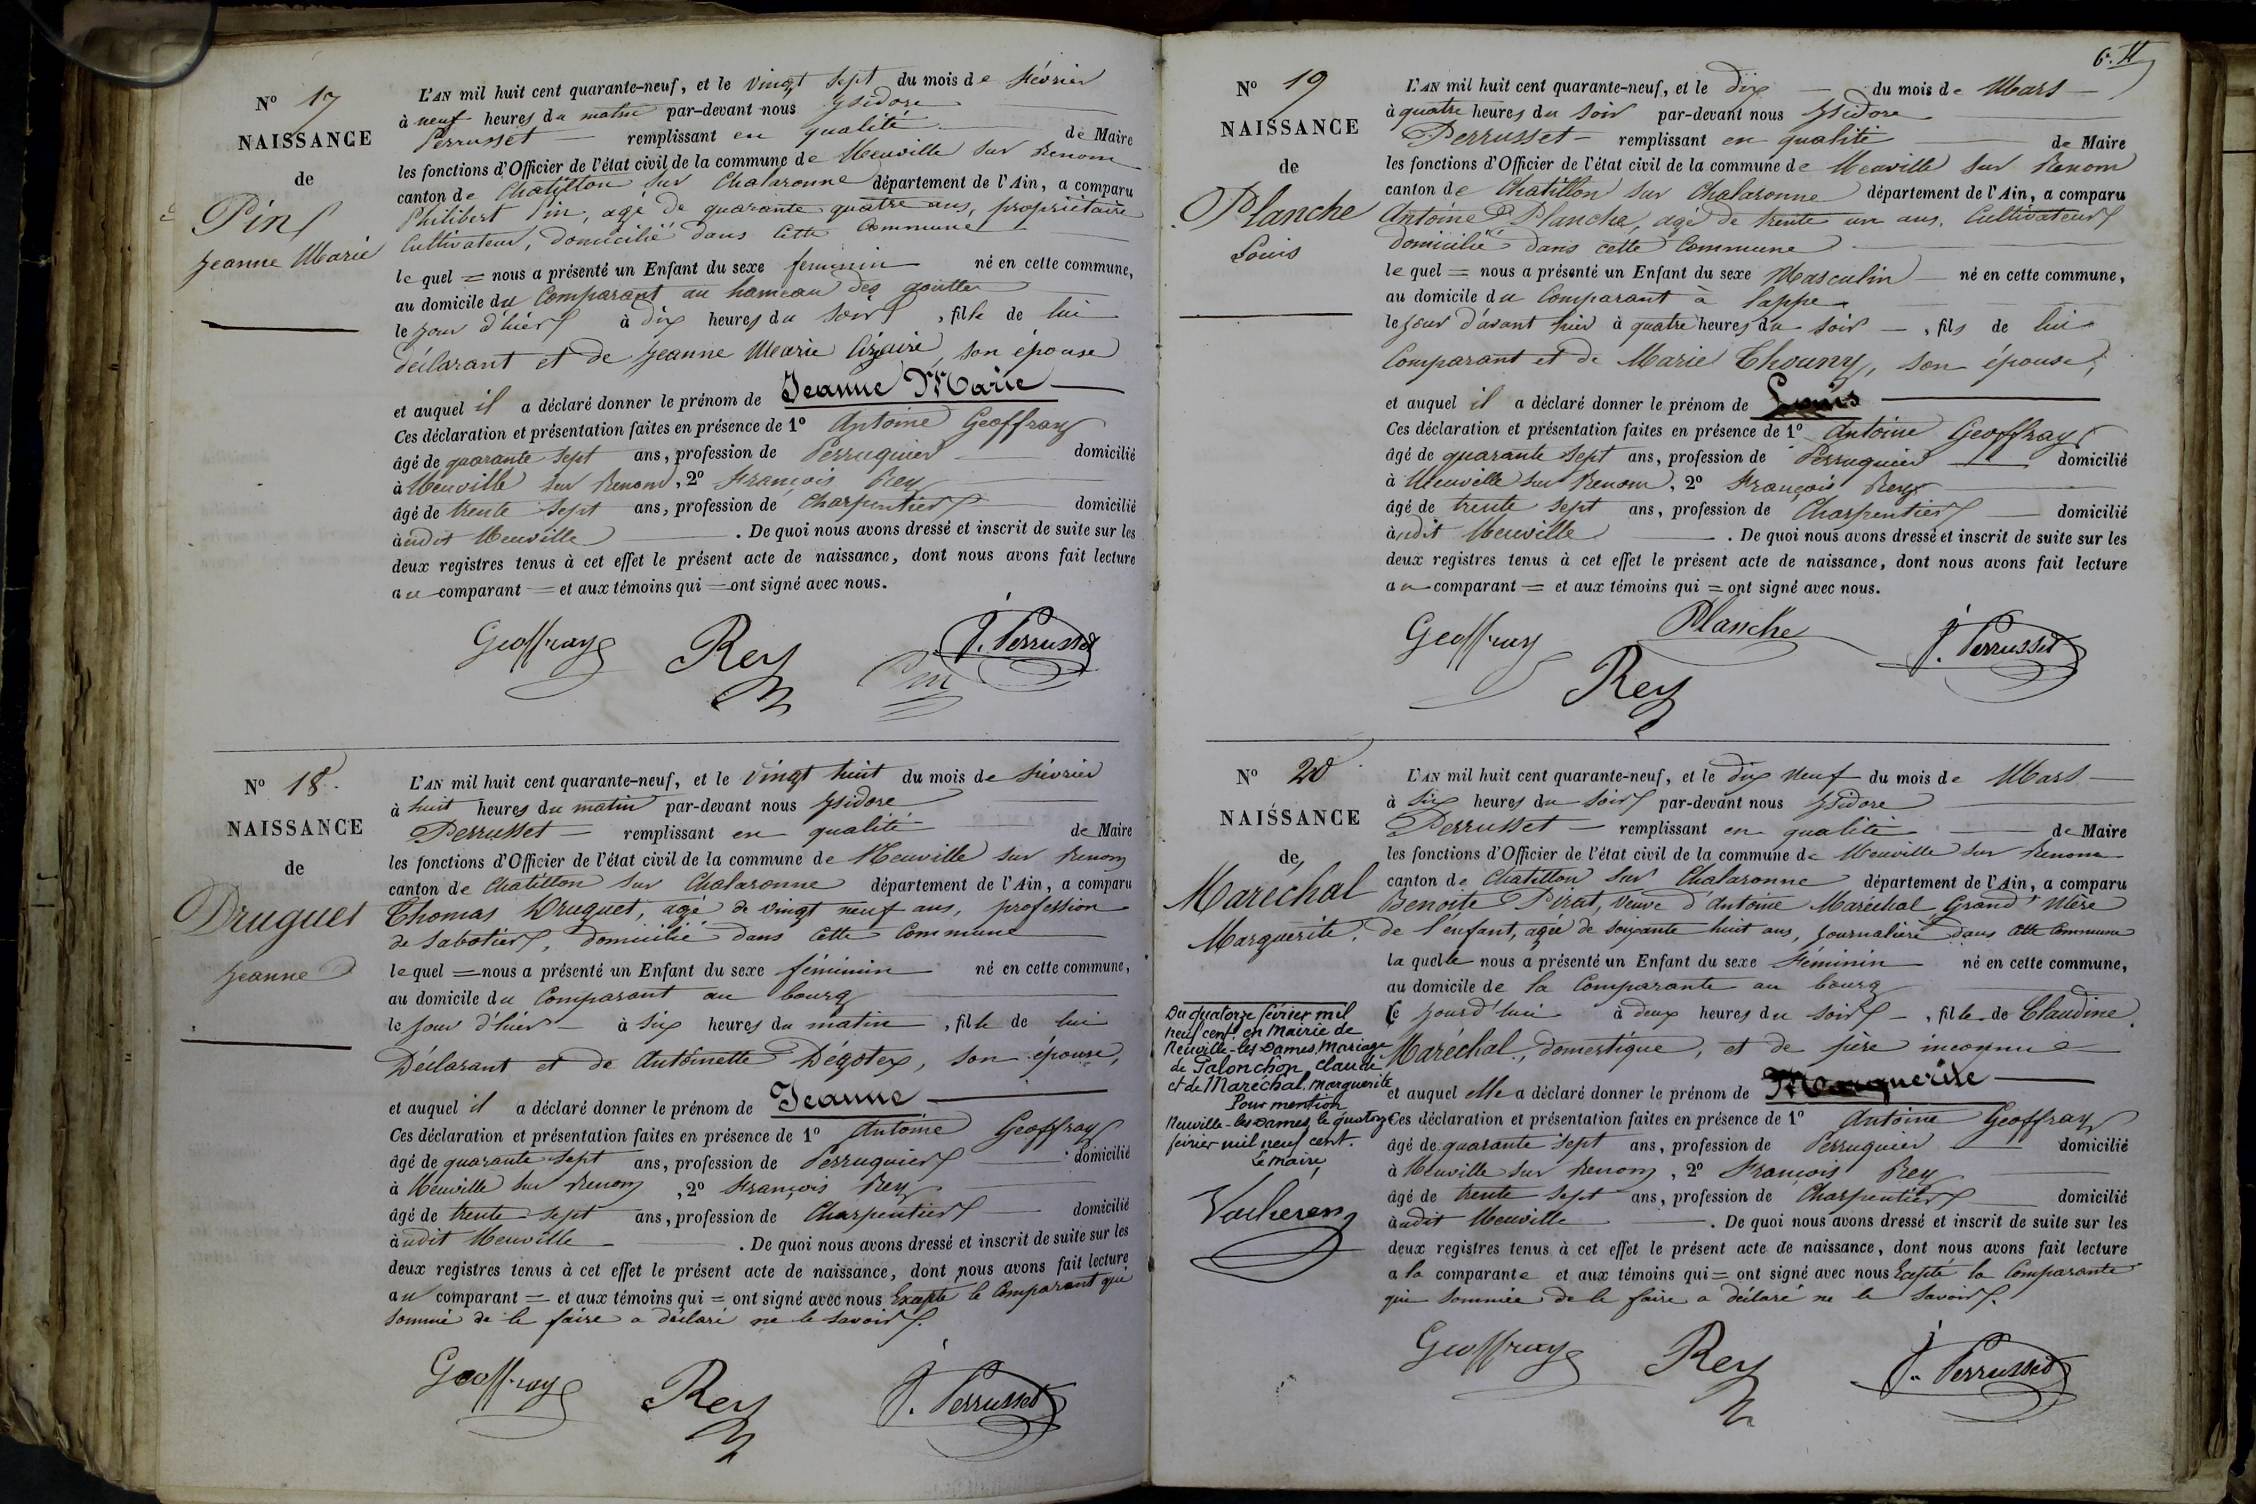 N° 17
NAISSANCE
de
Pin
Jeanne Marie
L'AN mil huit cent quarante-neuf, et le vingt sept du mois de Février
à neuf heures du matin par-devant nous Ysidore
Perrusset remplissant en qualité de Maire
les fonctions d'Officier de l'état civil de la commune de Neuville sur Renom
canton de Chatillon sur Chalaronne département de l'Ain, a comparu
Philibert Pin, agé de quarante quatre ans, propriétaire
Cultivateur, domicilié dans cette Commune
lequel = nous a présenté un Enfant du sexe feminin né en cette commune,
au domicile du Comparant au hameau des goutter
le jour d'hier à dix heures du soir, fille de lui
déclarant et de Jeanne Marie Cizaire, son épouse
et auquel il a déclaré donner le prénom de Jeanne Marie
Ces déclaration et présentation faites en présence de 1° Antoine Geoffray
âgé de quarante sept ans, profession de Perruquier domicilié
à Neuville sur Renom, 2° François Rey
âgé de trente sept ans, profession de Charpentier domicilié
àudit Neuville. De quoi nous avons dressé et inscrit de suite sur les
deux registres tenus à cet effet le présent acte de naissance, dont nous avons fait lecture
au comparant = et aux témoins qui = ont signé avec nous.
Geoffray Rey Pin J. Perrusset
N° 18
NAISSANCE
de
Druguet
Jeanne
L'AN mil huit cent quarante-neuf, et le vingt huit du mois de Février
à huit heures du matin par-devant nous Ysidore
Perrusset remplissant en qualité de Maire
les fonctions d'Officier de l'état civil de la commune de Neuville sur Renom
canton de Chatillon sur Chalaronne département de l'Ain, a comparu
Thomas Druguet, agé de vingt neuf ans, profession
de Sabotier, domicilié dans cette Commune
lequel = nous a présenté un Enfant du sexe féminin né en cette commune,
au domicile du Comparant au bourg
le jour d'hier à six heures du matin, fille de lui
Déclarant et de Antoinette Dégotex, son épouse,
et auquel il a déclaré donner le prénom de Jeanne
Ces déclaration et présentation faites en présence de 1° Antoine Geoffray
âgé de quarante sept ans, profession de Perruquier domicilié
à Neuville sur Renom, 2° François Rey
âgé de trente sept ans, profession de Charpentier domicilié
àudit Neuville. De quoi nous avons dressé et inscrit de suite sur les
deux registres tenus à cet effet le présent acte de naissance, dont nous avons fait lecture
au comparant = et aux témoins qui = ont signé avec nous Excepté le Comparant qui
sommé de le faire a déclaré ne le savoir.
Geoffray Rey J. Perrusset
N° 19
NAISSANCE
de
Planche
Louis
L'AN mil huit cent quarante-neuf, et le dix du mois de Mars
à quatre heures du soir par-devant nous Ysidore
Perrusset remplissant en qualité de Maire
les fonctions d'Officier de l'état civil de la commune de Neuville sur Renom
canton de Chatillon sur Chalaronne département de l'Ain, a comparu
Antoine Planche, agé de trente un ans, Cultivateur
domicilié dans cette Commune
lequel = nous a présenté un Enfant du sexe Masculin né en cette commune,
au domicile du Comparant à Lappe
le jour d'avant hier à quatre heures du soir, fils de lui
Comparant et de Marie Thouny, son épouse,
et auquel il a déclaré donner le prénom de Louis
Ces déclaration et présentation faites en présence de 1° Antoine Geoffray
âgé de quarante sept ans, profession de Perruquier domicilié
à Neuville sur Renom, 2° François Rey
âgé de trente sept ans, profession de Charpentier domicilié
àudit Neuville. De quoi nous avons dressé et inscrit de suite sur les
deux registres tenus à cet effet le présent acte de naissance, dont nous avons fait lecture
au comparant = et aux témoins qui = ont signé avec nous.
Geoffray Planche J. Perrusset
Rey
N° 20
NAISSANCE
de
Maréchal
Marguerite
Du quatorze février mil
neuf cent, en Mairie de
Neuville-les-Dames, Mariage
de Palonchon, Claude
et de Maréchal, Marguerite
Pour mention
Neuville-les-Dames, le quatorze
février mil neuf cent.
Le Maire,
L'AN mil huit cent quarante-neuf, et le dix neuf du mois de Mars
à six heures du soir par-devant nous Ysidore
Perrusset remplissant en qualité de Maire
les fonctions d'Officier de l'état civil de la commune de Neuville sur Renom
canton de Chatillon sur Chalaronne département de l'Ain, a comparu
Benoite Pirat, veuve d'Antoine Maréchal Grand Mère
de l'enfant, agée de soixante huit ans, journalière dans cette Commune
laquelle nous a présenté un Enfant du sexe Féminin né en cette commune,
au domicile de la Comparante au bourg
Ce jourd'hui à deux heures du soir, fille de Claudine
Maréchal, domestique, et de père inconnu
et auquel elle a déclaré donner le prénom de Marguerite
Ces déclaration et présentation faites en présence de 1° Antoine Geoffray
âgé de quarante sept ans, profession de Perruquier domicilié
à Neuville sur Renom, 2° François Rey
âgé de trente sept ans, profession de Charpentier domicilié
àudit Neuville. De quoi nous avons dressé et inscrit de suite sur les
deux registres tenus à cet effet le présent acte de naissance, dont nous avons fait lecture
a la comparante et aux témoins qui = ont signé avec nous Excepté la Comparante
qui sommée de le faire a déclaré ne le savoir.
Geoffray Rey J. Perrusset